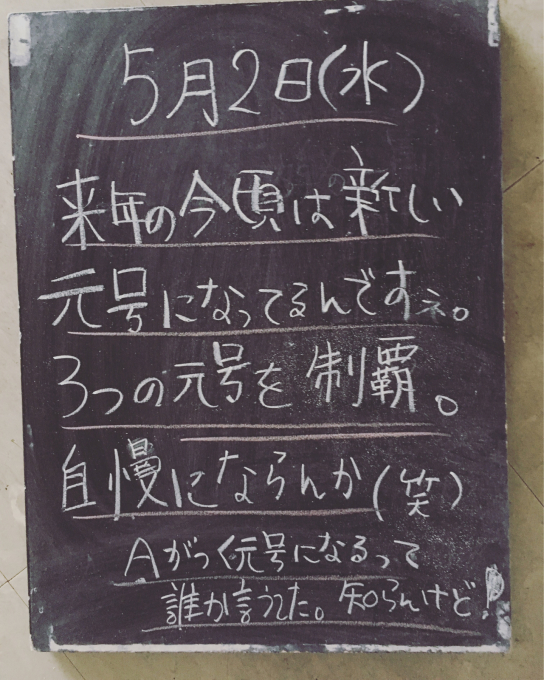 5月2日(水)
来年の今頃は新しい
元号になってるんですネ。
3つの元号を制覇。
自慢にならんか(笑)
Aがつく元号になるって
誰か言うた。知らんけど!